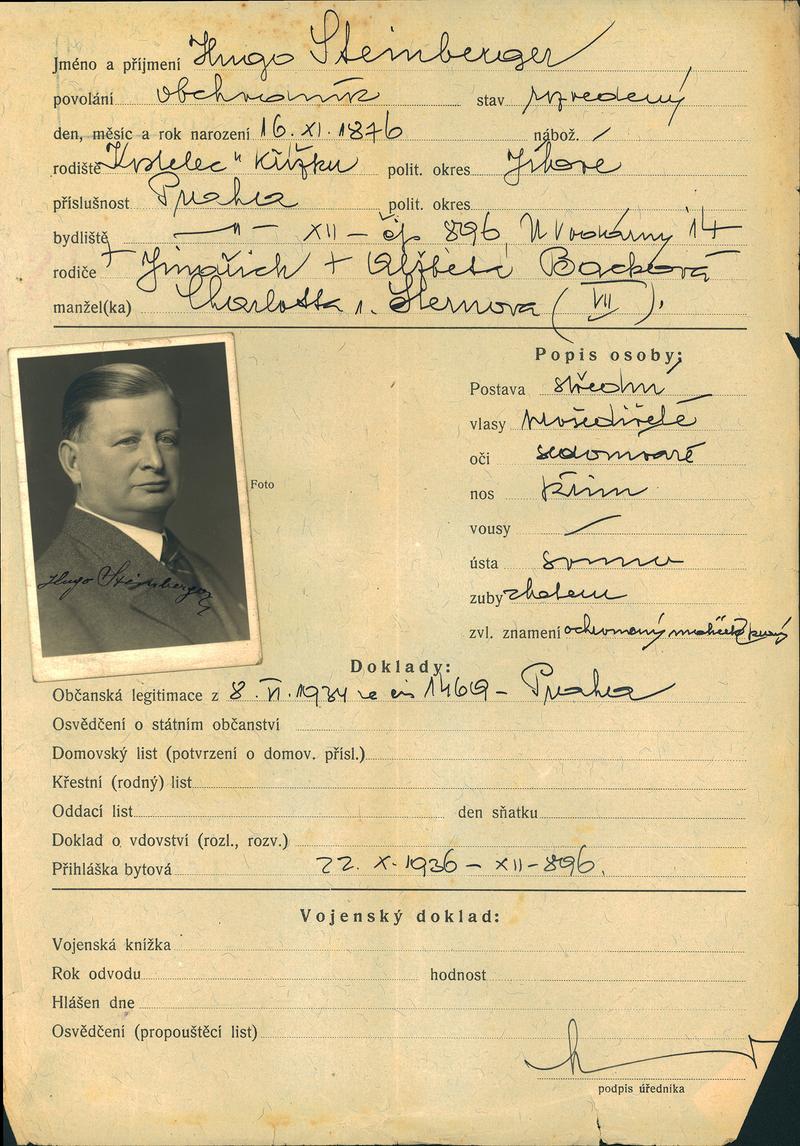 Jméno a příjmení Hugo Steinberger
povolání obchodník stav rozvedený
den, měsíc a rok narození 16. XI. 1876 nábož. /
rodiště Kostelec n Křížku polit. okres Jílové
příslušnost Praha polit. okres
bydliště — " — XII – čp 896, U Vodárny 14
rodiče + Jindřich + Alžběta Backová
manžel(ka) Charlotta r. Sternova (VII).
Popis osoby:
Postava střední
vlasy prošedivělé
oči šedomodré
Foto
nos přím
vousy /
ústa souměr
Hugo Steinberger
zuby
zvl. znamení ochromený malíček pravý
Doklady:
Občanská legitimace z 8. VI. 1934 čís 1469 – Praha
Osvědčení o státním občanství
Domovský list (potvrzení o domov. přísl.)
Křestní (rodný) list
Oddací list den sňatku
Doklad o vdovství (rozl., rozv.)
Přihláška bytová 22. X. 1936 – XII – 896.
Vojenský doklad:
Vojenská knížka
Rok odvodu hodnost
Hlášen dne
Osvědčení (propouštěcí list)
podpis úředníka